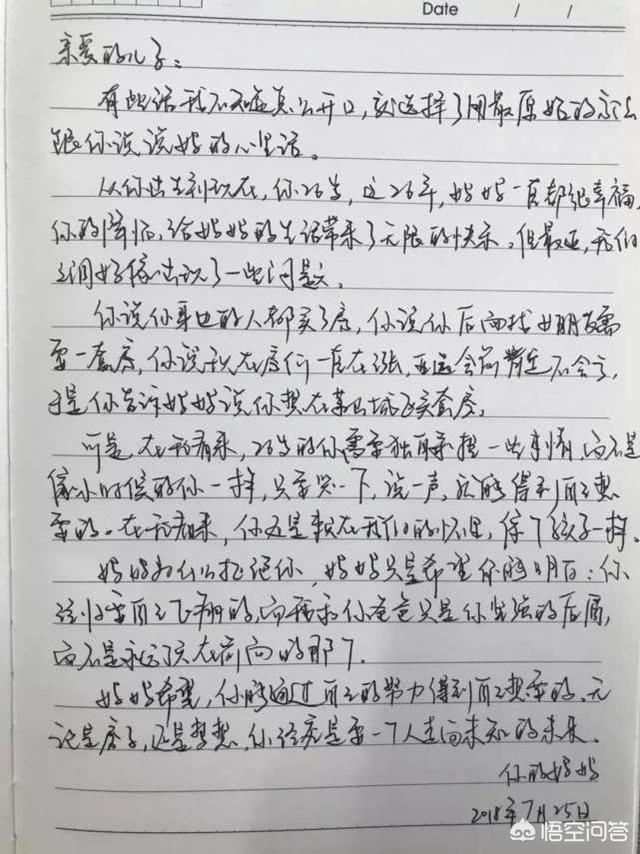 Date / /
亲爱的儿子:
有些话我不知道怎么开口,就选择了用最原始的方法
跟你说说妈的心里话。
从你出生到现在,你26岁,这26年,妈妈一直都很幸福,
你的降临,给妈妈的生活带来了无限的快乐。但最近,我们
之间好像出现了一些问题。
你说你身边的人都买了房,你说你后面找女朋友需
要一套房,你说现在房价一直在涨,亚运会前肯定不会亏,
于是你告诉妈妈说你想在 买套房。
可是,在我看来,26岁的你需要独自承担一些事情,而不是
像小时候的你一样,只要哭一下,说一声,就能得到自己想
要的。在我看来,你还是躲在我们的怀里,像个孩子一样。
妈妈为什么拒绝你,妈妈只是希望你能明白:你
终归要自己飞翔的,而我和你爸爸只是你坚强的后盾,
而不是永远顶在前面的那个。
妈妈希望,你能通过自己的努力得到自己想要的。无
论是房子,还是梦想,你终究是要一个人走向未知的未来。
你的妈妈
2018年7月25日
悟空问答